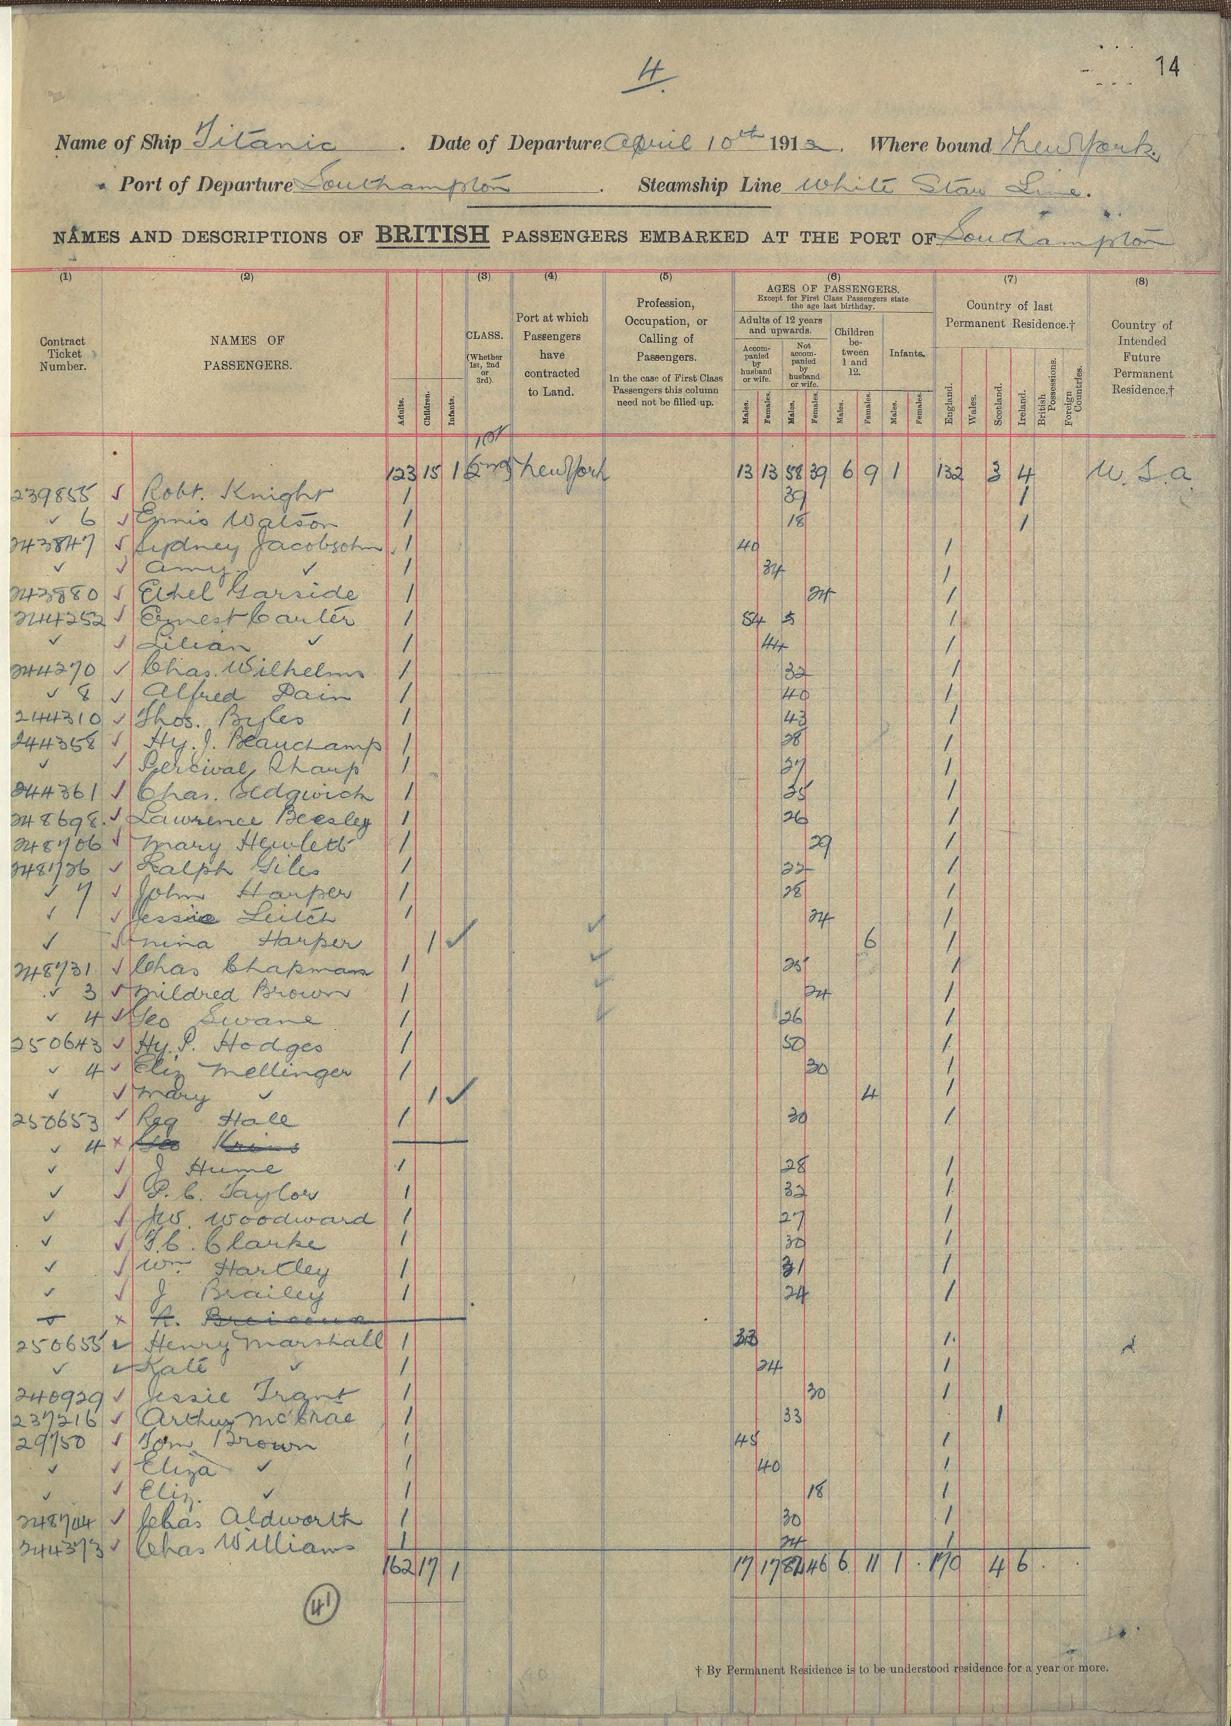 4
14
Name of Ship Titanic . Date of Departure April 10th 1912. Where bound New York.
Port of Departure Southampton . Steamship Line White Star Line.
NAMES AND DESCRIPTIONS OF BRITISH PASSENGERS EMBARKED AT THE PORT OF Southampton
(1) (2) (3) (4) (5) (6) (7) (8)
Contract Ticket Number.
NAMES OF PASSENGERS.
Adults.
Children.
Infants.
CLASS. (Whether 1st, 2nd or 3rd).
Port at which Passengers have contracted to Land.
Profession, Occupation, or Calling of Passengers.
In the case of First Class Passengers this column need not be filled up.
AGES OF PASSENGERS.
Except for First Class Passengers state the age last birthday.
Adults of 12 years and upwards.
Accompanied by husband or wife.
Not accompanied by husband or wife.
Children between 1 and 12.
Infants.
Males. Females. Males. Females. Males. Females. Males. Females.
Country of last Permanent Residence.†
England. Wales. Scotland. Ireland. British Possessions. Foreign Countries.
Country of Intended Future Permanent Residence.†
123 15 1 2nd New York 13 13 58 39 6 9 1 132 3 4 U.S.A
239855 ✓ Robt. Knight 1 39 1
✓ 6 ✓ Ennis Watson 1 18 1
243847 ✓ Sydney Jacobsohn 1 40 1
✓ ✓ Amy ✓ 1 34 1
243880 ✓ Ethel Garside 1 24 1
244252 ✓ Ernest Carter 1 54 1
✓ ✓ Lilian ✓ 1 44 1
244270 ✓ Chas. Wilhelms 1 32 1
✓ 8 ✓ Alfred Pain 1 40 1
244310 ✓ Thos. Byles 1 43 1
244358 ✓ Hy. J. Beauchamp 1 28 1
✓ ✓ Percival Sharp 1 27 1
244361 ✓ Chas. Sedgwick 1 25 1
248698 ✓ Lawrence Beesley 1 26 1
248706 ✓ Mary Hewlett 1 29 1
248726 ✓ Ralph Giles 1 22 1
✓ 7 ✓ John Harper 1 28 1
✓ ✓ Jessie Leitch 1 24 1
✓ ✓ Nina Harper 1 ✓ ✓ 6 1
248731 ✓ Chas Chapman 1 ✓ 25 1
✓ 3 ✓ Mildred Brown 1 ✓ 24 1
✓ 4 ✓ Geo Swane 1 ✓ 26 1
250643 ✓ Hy. P. Hodges 1 50 1
✓ 4 ✓ Eliz Mellinger 1 30 1
✓ ✓ Mary ✓ 1 ✓ 4 1
250653 ✓ Reg Hale 1 30 1
✓ 4 × Geo Krins
✓ ✓ J Hume 1 28 1
✓ ✓ P. C. Taylor 1 32 1
✓ ✓ J.W. Woodward 1 27 1
✓ ✓ F.C. Clarke 1 30 1
✓ ✓ Wm. Hartley 1 31 1
✓ ✓ J Brailey 1 24 1
✓ × R.
250655 ✓ Henry Marshall 1 33 1
✓ ✓ Kate ✓ 1 24 1
240929 ✓ Jessie Trant 1 30 1
237216 ✓ Arthur McCrae 1 33 1
29750 ✓ Tom Brown 1 45 1
✓ ✓ Eliza ✓ 1 40 1
✓ ✓ Eliz. ✓ 1 18 1
248744 ✓ Chas Aldworth 1 30 1
244373 ✓ Chas Williams 1 24 1
162 17 1 17 17 82 46 6 11 1 170 4 6
41
† By Permanent Residence is to be understood residence for a year or more.